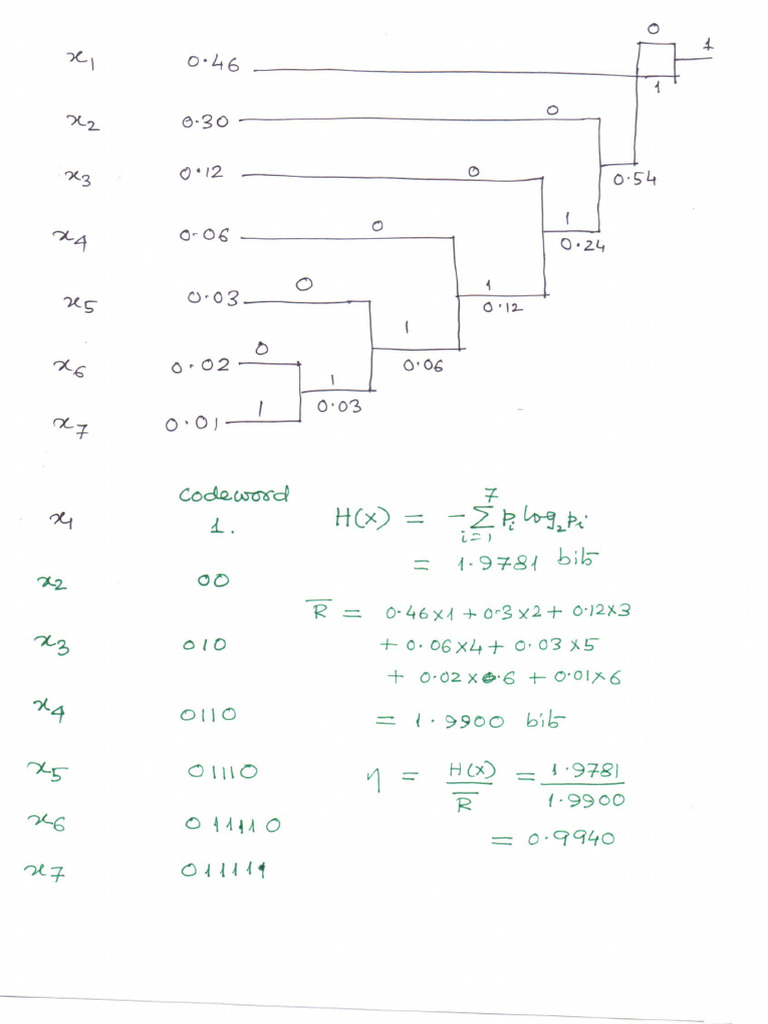 0
1
x₁ 0.46
1
x₂ 0.30 0
x₃ 0.12 0
0.54
x₄ 0.06 0 1
0.24
x₅ 0.03 0 1
0.12
x₆ 0.02 0 1
0.06
x₇ 0.01 1 1
0.03
codeword
x₁ 1.
x₂ 00
x₃ 010
x₄ 0110
x₅ 01110
x₆ 011110
x₇ 011111
H(X) = -∑ᵢ₌₁⁷ pᵢ log₂ pᵢ
= 1.9781 bit
R̅ = 0.46×1 + 0.3×2 + 0.12×3
+ 0.06×4 + 0.03×5
+ 0.02×6 + 0.01×6
= 1.9900 bit
η = H(X)/R̅ = 1.9781/1.9900
= 0.9940